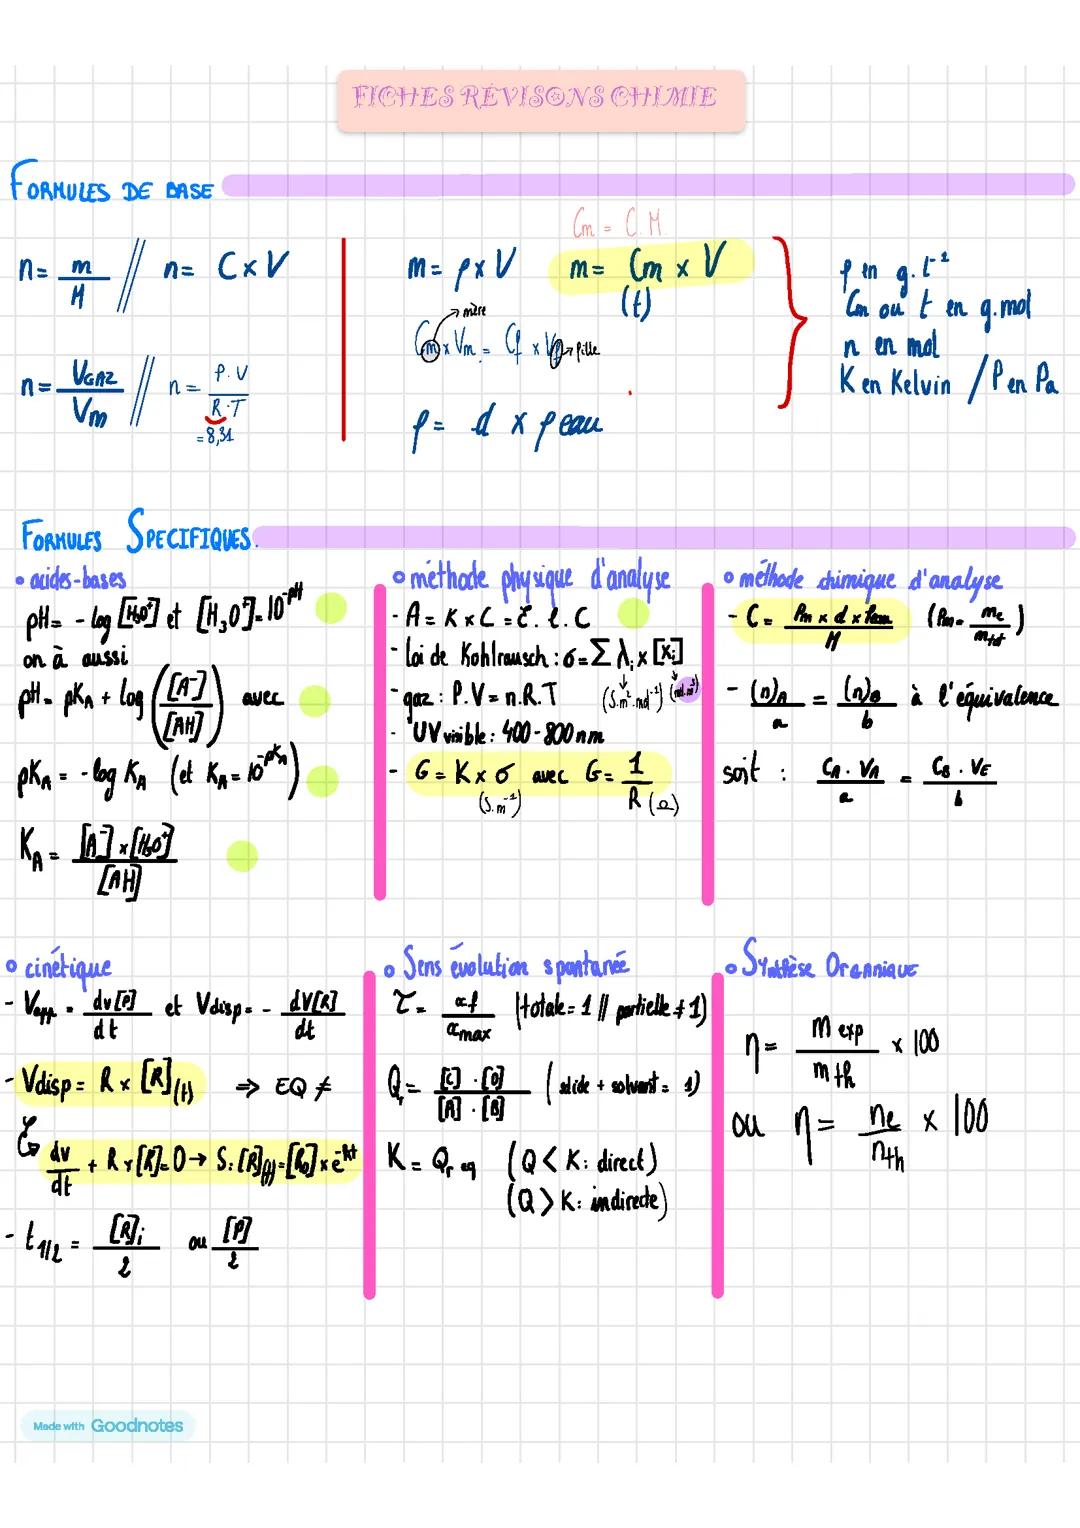 FICHES RÉVISONS CHIMIE
FORMULES DE BASE
n = m/M // n = C × V
n = VGAZ/Vm // n = P.V/R.T
= 8,31
Cm = C.M
m = ρ × V m = Cm × V
(t)
mère
Cm × Vm = Cf × Vf fille
ρ = d × ρeau
ρ en g.L⁻¹
Cm ou t en g.mol
n en mol
K en Kelvin / P en Pa
FORMULES SPECIFIQUES.
• acides-bases
pH = - log [H₃O⁺] et [H₃O⁺] = 10^-pH
on à aussi
pH = pKA + log ([A⁻]/[AH]) avec
pKA = - log KA (et KA = 10^-pKA)
KA = [A⁻] × [H₃O⁺]/[AH]
• méthode physique d'analyse
- A = K × C = Ɛ. l. C
- loi de Kohlrausch : σ = Σ λi × [Xi]
(S.m².mol⁻¹) (mol.m⁻³)
- gaz : P.V = n.R.T
- UV visible : 400-800 nm
- G = K × σ avec G = 1/R (Ω)
(S.m⁻¹)
• méthode chimique d'analyse
- C = Pm × d × ρeau/M (Pm = me/mtot)
- (n)A/a = (n)B/b à l'équivalence
soit : CA . VA/a = CB . VE/b
• cinétique
- Vapp. = dv[P]/dt et Vdisp = - dV[R]/dt
- Vdisp = R × [R](t) ⇒ EQ ≠
dv/dt + R × [R] = 0 → S: [R](t) = [R₀] × e^-Rt
- t 1/2 = [R]i/2 ou [P]/2
• Sens évolution spontané
τ = xf/xmax (totale = 1 // partielle ≠ 1)
Qr = [C] . [D]/[A] . [B] (solide + solvant = 1)
K = Qr eq (Q < K : direct)
(Q > K : indirecte)
• SYNTHÈSE ORGANIQUE
η = m exp/m th × 100
ou η = ne/nth × 100
Made with Goodnotes